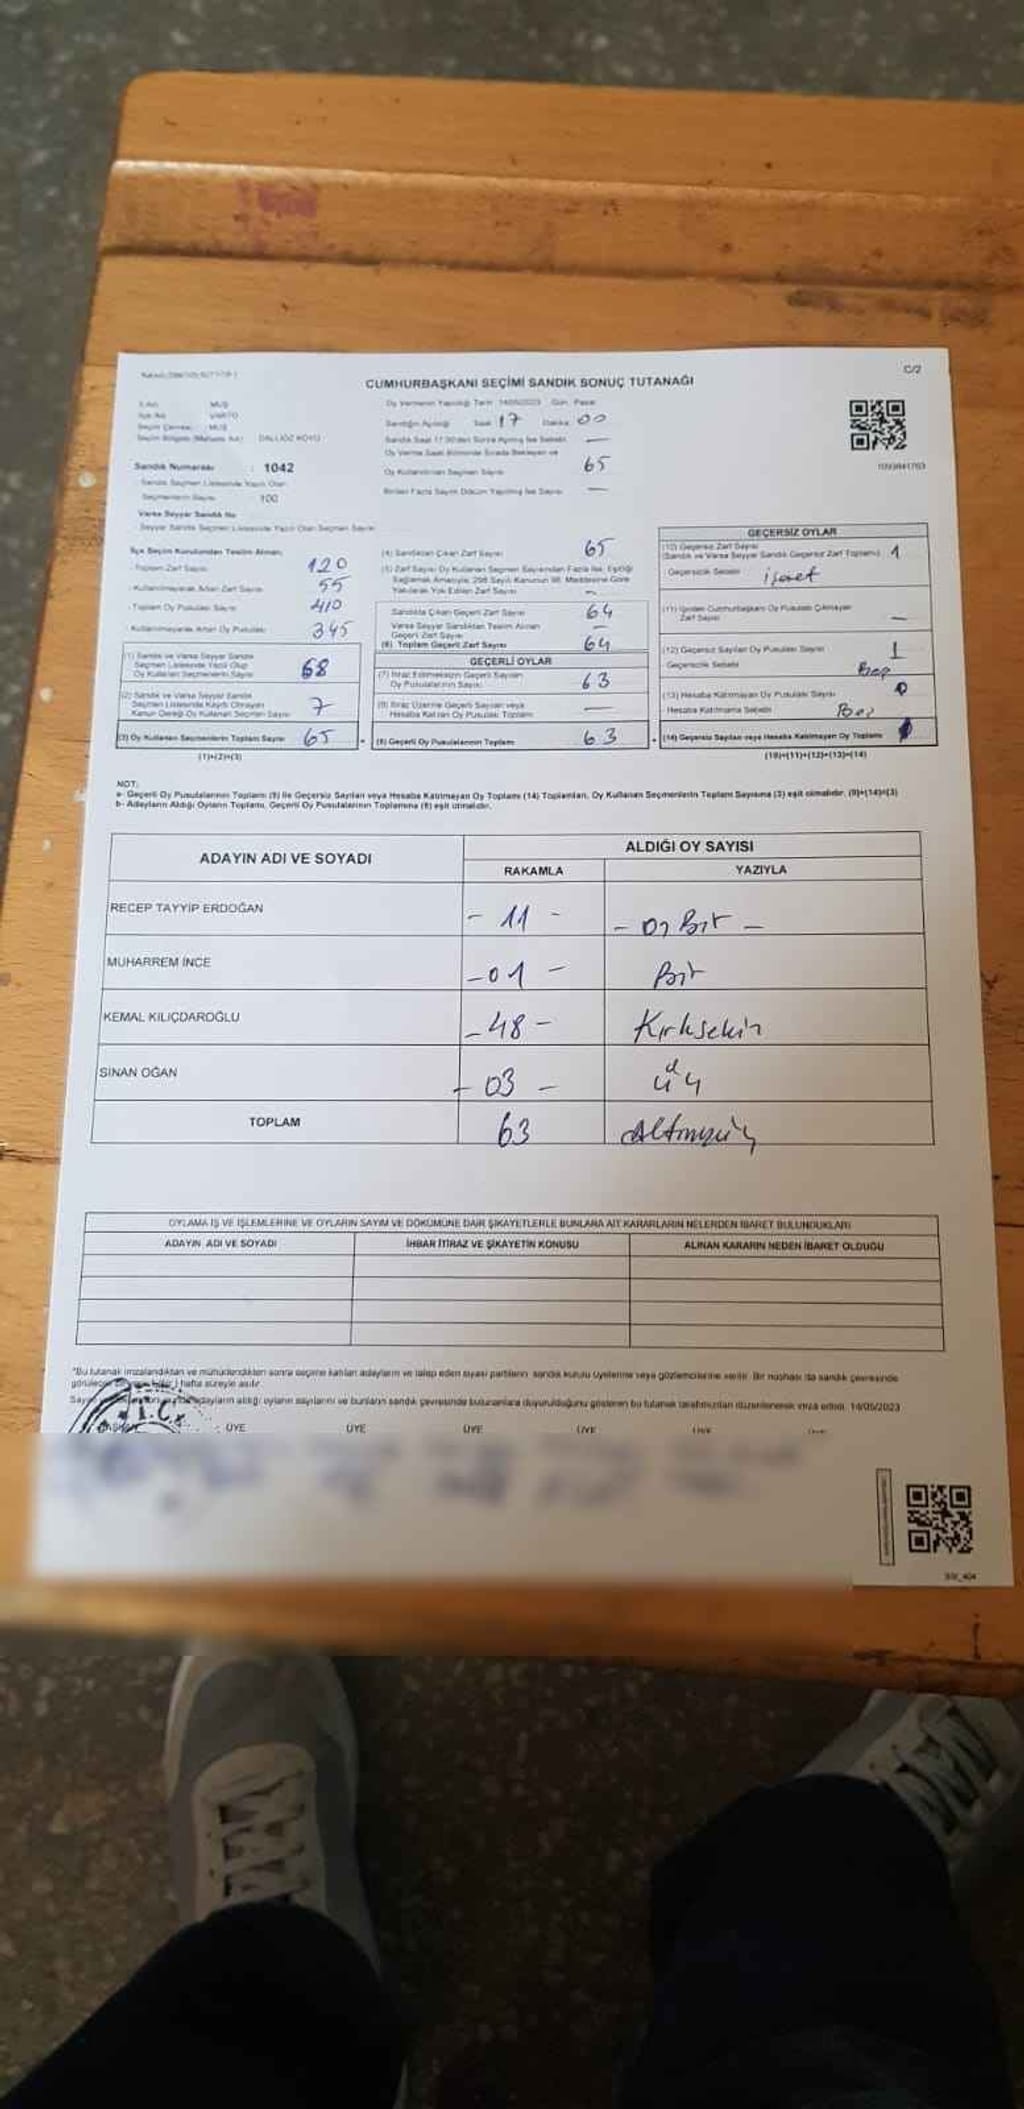 C/2
CUMHURBAŞKANI SEÇİMİ SANDIK SONUÇ TUTANAĞI
MUŞ
VARTO
Seçim Çevresi : MUŞ
Oy Vermenin Yapıldığı Tarih 14/05/2023 Gün Pazar
Sandığın Açıldığı Saat 17 Dakika 00
DALLIÖZ KÖYÜ
Sandık Numarası : 1042
Sandık Seçmen Listesinde Yazılı Olan
Seçmenlerin Sayısı 100
Oy Kullandırılan Seçmen Sayısı 65
Varsa Seyyar Sandık No
Seyyar Sandık Seçmen Listesinde Yazılı Olan Seçmen Sayısı
İlçe Seçim Kurulundan Teslim Alınan;
- Toplam Zarf Sayısı 120
- Kullanılmayarak Artan Zarf Sayısı 55
- Toplam Oy Pusulası Sayısı 410
- Kullanılmayarak Artan Oy Pusulası 345
(1) Sandık ve Varsa Seyyar Sandık
Seçmen Listesinde Yazılı Olup
Oy Kullanan Seçmenlerin Sayısı
(2) Sandık ve Varsa Seyyar Sandık
Seçmen Listesinde Kayıtlı Olmayan
Kanun Gereği Oy Kullanan Seçmen Sayısı 7
(3) Oy Kullanan Seçmenlerin Toplam Sayısı 65
(1)+(2)=(3)
(4) Sandıktan Çıkan Zarf Sayısı 65
(5) Zarf Sayısı Oy Kullanan Seçmen Sayısından Fazla İse, Eşitliği
Sağlamak Amacıyla, 298 Sayılı Kanunun 98. Maddesine Göre
Yakılarak Yok Edilen Zarf Sayısı -
Sandıkta Çıkan Geçerli Zarf Sayısı 64
Varsa Seyyar Sandıktan Teslim Alınan
Geçerli Zarf Sayısı -
(6) Toplam Geçerli Zarf Sayısı 64
GEÇERLİ OYLAR
(7) İtiraz Edilmeksizin Geçerli Sayılan
Oy Pusulalarının Sayısı 63
(8) İtiraz Üzerine Geçerli Sayılan veya
Hesaba Katılan Oy Pusulası Toplamı -
(9) Geçerli Oy Pusulalarının Toplamı 63
GEÇERSİZ OYLAR
(10) Geçersiz Zarf Sayısı
(Sandık ve Varsa Seyyar Sandık Geçersiz Zarf Toplamı) 1
Geçersizlik Sebebi işaret
(11) İçinden Cumhurbaşkanı Oy Pusulası Çıkmayan
Zarf Sayısı -
(12) Geçersiz Sayılan Oy Pusulası Sayısı 1
Geçersizlik Sebebi
(13) Hesaba Katılmayan Oy Pusulası Sayısı
Hesaba Katılmama Sebebi
(14) Geçersiz Sayılan veya Hesaba Katılmayan Oy Toplamı
(10)+(11)+(12)+(13)=(14)
NOT:
a- Geçerli Oy Pusulalarının Toplamı (9) ile Geçersiz Sayılan veya Hesaba Katılmayan Oy Toplamı (14) Toplamları, Oy Kullanan Seçmenlerin Toplam Sayısına (3) eşit olmalıdır. (9)+(14)=(3)
b- Adayların Aldığı Oyların Toplamı, Geçerli Oy Pusulalarının Toplamına (9) eşit olmalıdır.
ADAYIN ADI VE SOYADI
ALDIĞI OY SAYISI
RAKAMLA
YAZIYLA
RECEP TAYYİP ERDOĞAN - 11 - - On Bir -
MUHARREM İNCE - 01 - Bir
KEMAL KILIÇDAROĞLU - 48 - Kırksekiz
SİNAN OĞAN - 03 - üç
TOPLAM 63 Altmışüç
OYLAMA İŞ VE İŞLEMLERİNE VE OYLARIN SAYIM VE DÖKÜMÜNE DAİR ŞİKAYETLERLE BUNLARA AİT KARARLARIN NELERDEN İBARET BULUNDUKLARI
ADAYIN ADI VE SOYADI
İHBAR İTİRAZ VE ŞİKAYETİN KONUSU
ALINAN KARARIN NEDEN İBARET OLDUĞU
*Bu tutanak imzalandıktan ve mühürlendikten sonra seçime katılan adayların ve talep eden siyasi partilerin sandık kurulu üyelerine veya gözlemcilerine verilir. Bir nüshası da sandık çevresinde
hafta süreyle asılır.
adayların aldığı oyların sayılarını ve bunların sandık çevresinde bulunanlara duyurulduğunu gösteren bu tutanak tarafımızdan düzenlenerek imza edildi. 14/05/2023
T.C.
ÜYE ÜYE ÜYE ÜYE ÜYE